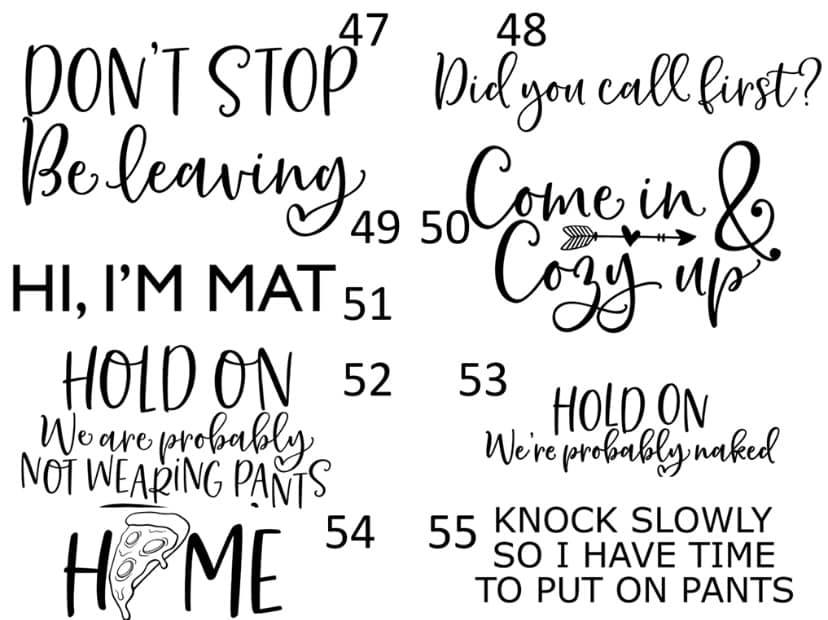 47
DON'T STOP
Be leaving
48
Did you call first?
49
50
Come in &
Cozy up
HI, I'M MAT
51
HOLD ON
We are probably
NOT WEARING PANTS
52
53
HOLD ON
We're probably naked
H ME
54
55
KNOCK SLOWLY
SO I HAVE TIME
TO PUT ON PANTS